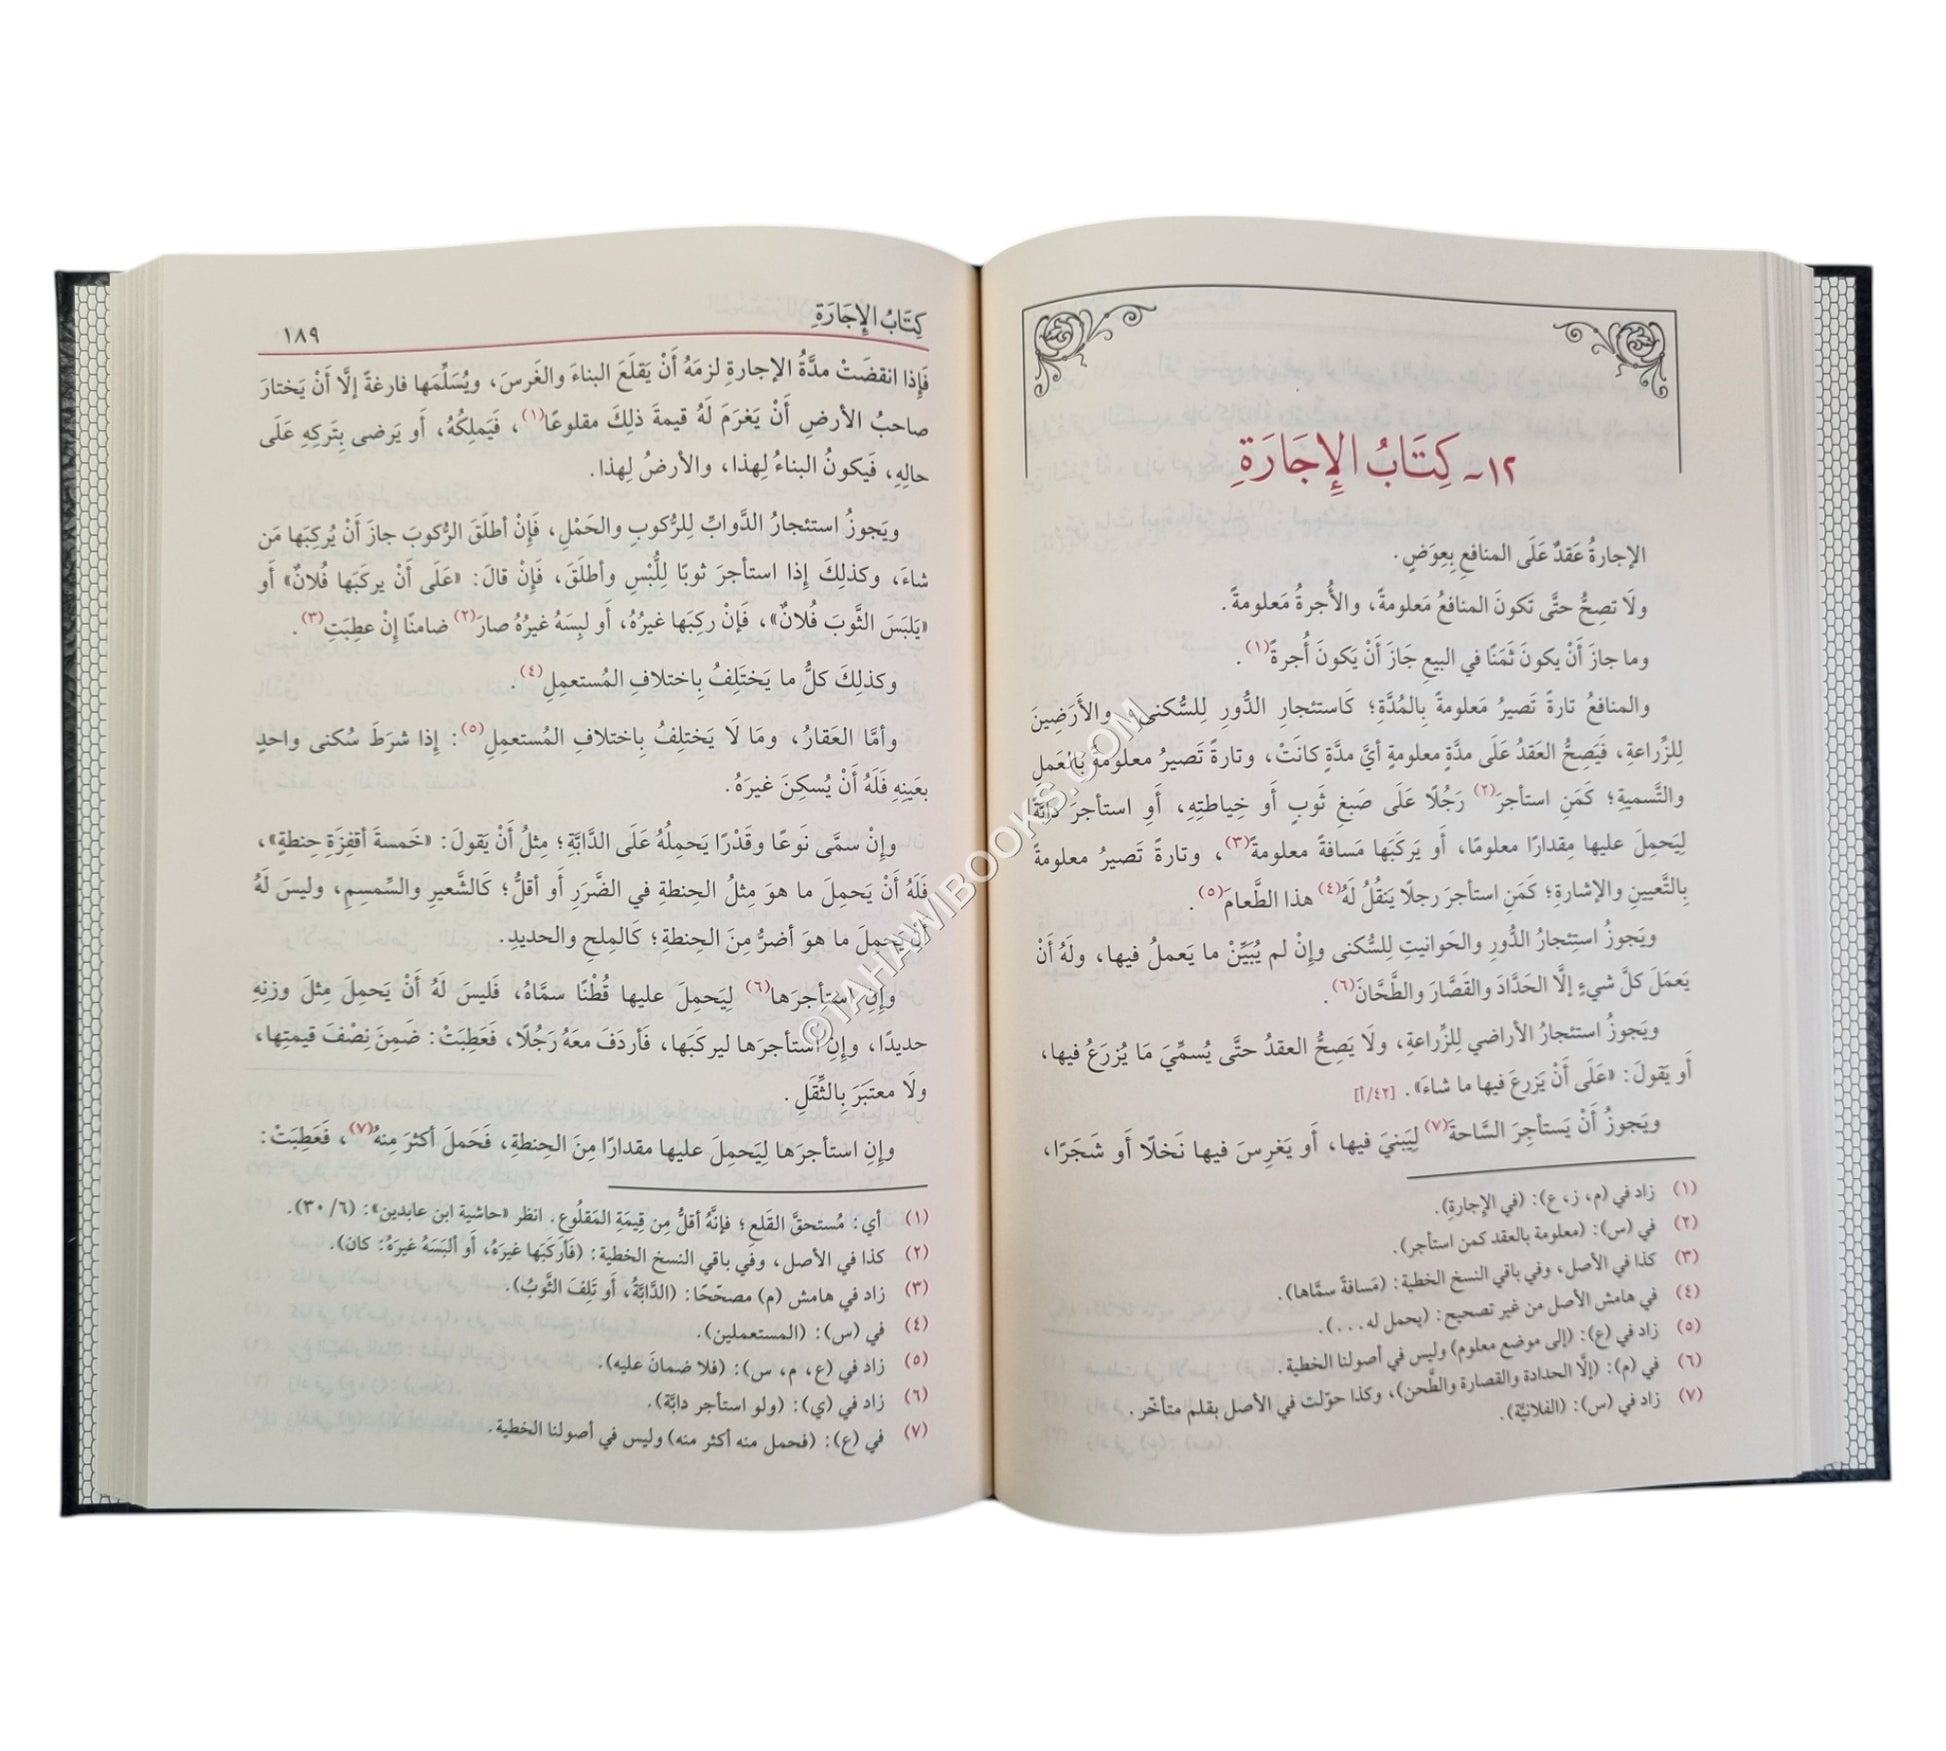 ١٢ـ كِتَابُ الإِجَارَةِ
الإجارةُ عَقدٌ عَلَى المنافعِ بِعِوَضٍ.
ولَا تصِحُّ حتَّى تَكونَ المنافعُ مَعلومةً، والأُجرةُ مَعلومةً.
وما جازَ أَنْ يكونَ ثَمَنًا في البيعِ جَازَ أَنْ يَكونَ أُجرةً(١).
والمنافعُ تارةً تَصيرُ مَعلومةً بِالمُدَّةِ؛ كَاستئجارِ الدُّورِ لِلسُّكنى، والأَرَضِينَ
لِلزِّراعةِ، فَيَصِحُّ العَقدُ عَلَى مدَّةٍ معلومةٍ أيَّ مدَّةٍ كانَتْ، وتارةً تَصيرُ معلومةً بِالعَملِ
والتَّسميةِ؛ كَمَنِ استأجرَ(٢) رَجُلًا عَلَى صَبغِ ثَوبٍ أَو خِياطتِهِ، أَوِ استأجرَ دابَّةً
لِيَحمِلَ عليها مِقدارًا معلومًا، أَو يَركَبَها مَسافةً معلومةً(٣)، وتارةً تَصيرُ معلومةً
بِالتَّعيينِ والإشارةِ؛ كَمَنِ استأجرَ رجلًا يَنقُلُ لَهُ(٤) هذا الطَّعامَ(٥).
ويَجوزُ استِئجارُ الدُّورِ والحَوانيتِ لِلسُّكنى وإِنْ لم يُبَيِّنْ ما يَعملُ فيها، ولَهُ أَنْ
يَعمَلَ كلَّ شيءٍ إلَّا الحَدَّادَ والقَصَّارَ والطَّحَّانَ(٦).
ويَجوزُ استئجارُ الأراضي لِلزِّراعةِ، ولَا يَصِحُّ العقدُ حتَّى يُسمِّيَ مَا يُزرَعُ فيها،
أَو يَقولَ: «عَلَى أَنْ يَزرعَ فيها ما شاءَ». [٤٢/أ]
ويَجوزُ أَنْ يَستأجِرَ السَّاحةَ(٧) لِيَبنيَ فيها، أَو يَغرِسَ فيها نَخلًا أَو شَجَرًا،
(١) زاد في (م، ز، ع): (في الإجارةِ).
(٢) في (س): (معلومة بالعقد كمن استأجر).
(٣) كذا في الأصل، وفي باقي النسخ الخطية: (مَسافةً سمَّاها).
(٤) في هامش الأصل من غير تصحيح: (يحمل له...).
(٥) زاد في (ع): (إلى موضع معلوم) وليس في أصولنا الخطية.
(٦) في (م): (إلَّا الحدادة والقصارة والطَّحن)، وكذا حوّلت في الأصل بقلم متأخّر.
(٧) زاد في (س): (الفلانيَّة).
كِتَابُ الإِجَارَةِ ١٨٩
فَإِذا انقضَتْ مدَّةُ الإجارةِ لزمَهُ أَنْ يَقلَعَ البناءَ والغَرسَ، ويُسَلِّمَها فارغةً إلَّا أَنْ يَختارَ
صاحبُ الأرضِ أَنْ يَغرَمَ لَهُ قيمةَ ذلِكَ مقلوعًا(١)، فَيَملِكُهُ، أَو يَرضى بِتَركِهِ عَلَى
حالِهِ، فَيكونُ البناءُ لِهذا، والأرضُ لِهذا.
ويَجوزُ استئجارُ الدَّوابِّ لِلرُّكوبِ والحَمْلِ، فَإِنْ أطلَقَ الرُّكوبَ جازَ أَنْ يُركِبَها مَن
شاءَ، وكذلِكَ إِذا استأجرَ ثوبًا لِلُّبْسِ وأطلَقَ، فَإِنْ قالَ: «عَلَى أَنْ يركبَها فُلانٌ» أَو
«يَلبَسَ الثَّوبَ فُلانٌ»، فَإنْ ركِبَها غيرُهُ، أَو لبِسَهُ غيرُهُ صارَ(٢) ضامنًا إِنْ عطِبَتِ(٣).
وكذلِكَ كلُّ ما يَختَلِفُ بِاختلافِ المُستعمِلِ(٤).
وأمَّا العَقارُ، ومَا لَا يَختلِفُ بِاختلافِ المُستعمِلِ(٥): إِذا شرَطَ سُكنى واحدٍ
بعَينِهِ فَلَهُ أَنْ يُسكِنَ غيرَهُ.
وإِنْ سمَّى نَوعًا وقَدْرًا يَحمِلُهُ عَلَى الدَّابَّةِ؛ مِثلُ أَنْ يَقولَ: «خَمسةَ أقفِزَةِ حِنطةٍ»،
فَلَهُ أَنْ يَحمِلَ ما هوَ مِثلُ الحِنطةِ في الضَّرَرِ أَو أقلُّ؛ كَالشَّعيرِ والسِّمسِمِ، وليسَ لَهُ
أَنْ يَحمِلَ ما هوَ أضرُّ مِنَ الحِنطةِ؛ كَالمِلحِ والحديدِ.
وإِنِ استأجرَها(٦) لِيَحمِلَ عليها قُطْنًا سمَّاهُ، فَليسَ لَهُ أَنْ يَحمِلَ مِثلَ وزنِهِ
حديدًا، وإِنِ استأجرَها ليركَبَها، فَأردَفَ معَهُ رَجُلًا، فَعَطِبَتْ: ضَمِنَ نِصْفَ قيمتِها،
ولَا معتبَرَ بِالثِّقَلِ.
وإِنِ استأجرَها لِيَحمِلَ عليها مقدارًا مِنَ الحِنطةِ، فَحَملَ أكثرَ مِنهُ(٧)، فَعَطِبَتْ:
(١) أي: مُستحقَّ القَلعِ؛ فإنَّهُ أقلُّ مِن قِيمَةِ المَقلُوعِ. انظر «حاشية ابن عابدين»: (٦/ ٣٠).
(٢) كذا في الأصل، وفي باقي النسخ الخطية: (فَأَركَبَها غيرَهُ، أو ألبَسَهُ غيرَهُ: كان).
(٣) زاد في هامش (م) مصحّحًا: (الدَّابَّةُ، أو تَلِفَ الثَّوبُ).
(٤) في (س): (المستعملين).
(٥) زاد في (ع، م، س): (فلا ضمانَ عليه).
(٦) زاد في (ي): (ولو استأجر دابَّة).
(٧) في (ع): (فحمل منه أكثر منه) وليس في أصولنا الخطية.
©TAHAWIBOOKS.COM